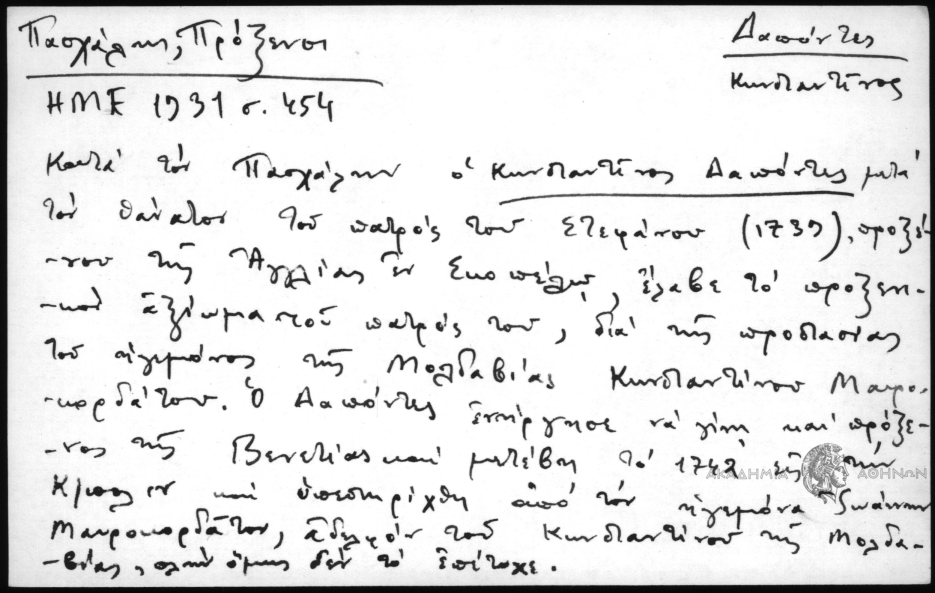 Πασχάλης, Πρόξενοι
Δαπόντες
Κωνσταντῖνος
ΗΜΕ 1931 σ. 454
Κατά τόν Πασχάλην ὁ Κωνσταντῖνος Δαπόντες μετά
τόν θάνατον τοῦ πατρός του Στεφάνου (1739), προξέ-
-νου τῆς Ἀγγλίας ἐν Σκοπέλῳ, ἔλαβε τό προξενι-
-κόν ἀξίωμα τοῦ πατρός του, διά τῆς προστασίας
τοῦ ἡγεμόνος τῆς Μολδαβίας Κωνσταντίνου Μαυρο-
-κορδάτου. Ὁ Δαπόντες ἐνήργησε νά γίνῃ καί πρόξε-
-νος τῆς Βενετίας καί μετέβη τό 1742 εἰς τήν
Κ/πολιν καί ὑπεστηρίχθη ἀπό τόν ἡγεμόνα Ἰωάννην
Μαυροκορδᾶτον, ἀδελφόν τοῦ Κωνσταντίνου τῆς Μολδα-
-βίας, πλήν ὅμως δέν τό ἐπέτυχε.
ΑΚΑΔΗΜΙΑ ΑΘΗΝΩΝ